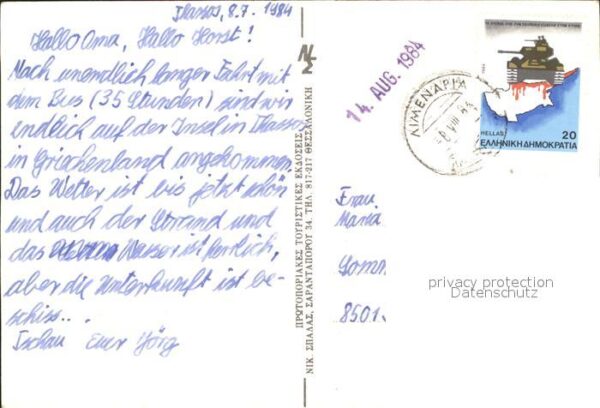 Thassos, 8.7. 1984
Hallo Oma, Hallo Horst!
Nach unendlich langer Fahrt mit
dem Bus (35 Stunden) sind wir
endlich auf der Insel in Thassos
in Griechenland angekommen.
Das Wetter ist bis jetzt schön
und auch der Strand und
das Wasser ist herrlich,
aber die Unterkunft ist be-
schiss...
Tschau Euer Jörg
N2
ΠΡΩΤΟΠΟΡΙΑΚΕΣ ΤΟΥΡΙΣΤΙΚΕΣ ΕΚΔΟΣΕΙΣ
ΝΙΚ. ΣΠΑΛΑΣ, ΣΑΡΑΝΤΑΠΟΡΟΥ 34, ΤΗΛ. 817-217 ΘΕΣΣΑΛΟΝΙΚΗ
14. AUG. 1984
ΛΙΜΕΝΑΡΙΑ
HELLAS 20
ΕΛΛΗΝΙΚΗ ΔΗΜΟΚΡΑΤΙΑ
Frau
Maria
8501
privacy protection
Datenschutz